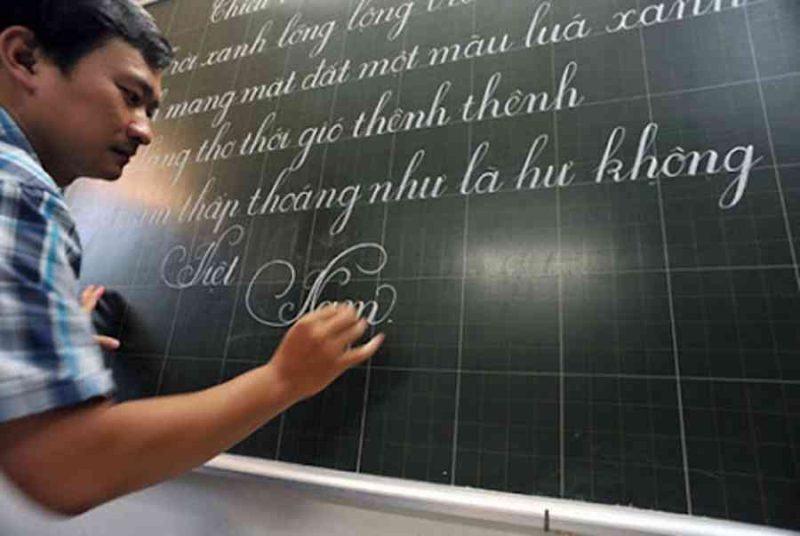 xanh lồng lộng
mang mặt đất một màu luá xanh
thơ thới gió thênh thênh
thấp thoáng như là hư không
Việt Nam.